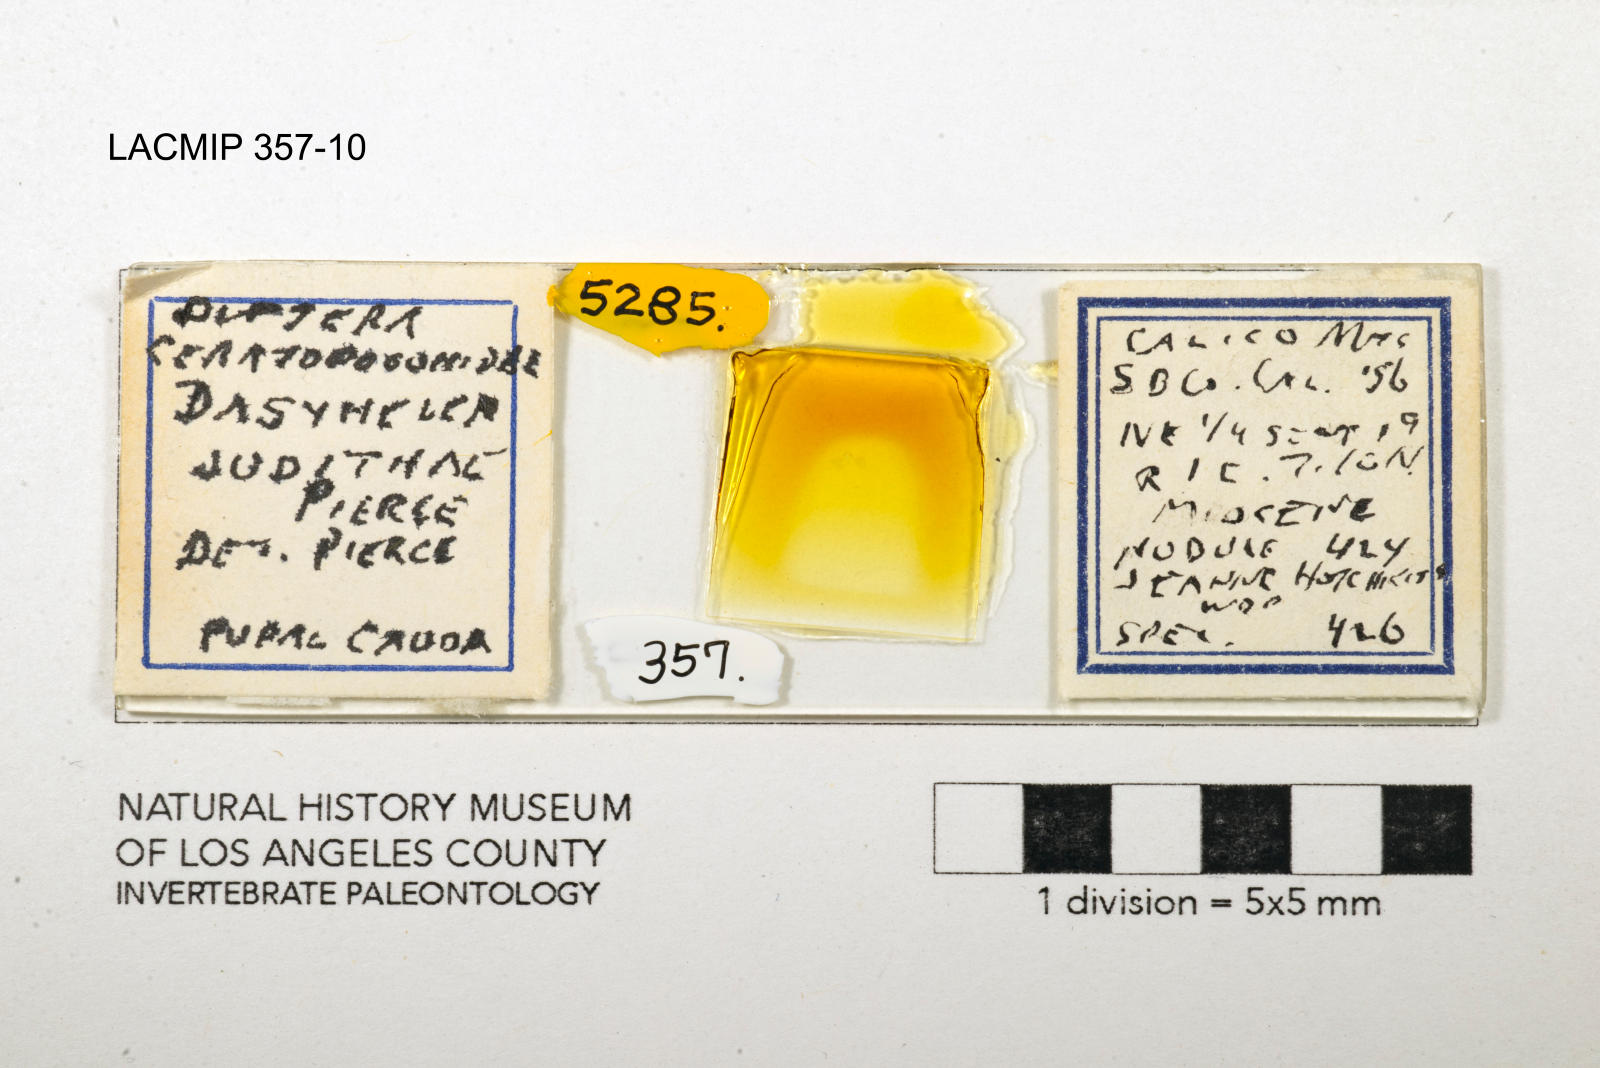 LACMIP 357-10
DIPTERA
CERATOPOGONIDAE
DASYHELEA
JUDITHAE
PIERCE
DET. PIERCE
PUPAL CAUDA
5285.
357.
CALICO MTS
S B CO. CAL. '56
NE 1/4 SECT 19
R 1 E. T. 10 N
MIOCENE
NODULE 424
JEANNE HOTCHKISS
WDP
SPEC. 426
NATURAL HISTORY MUSEUM
OF LOS ANGELES COUNTY
INVERTEBRATE PALEONTOLOGY
1 division = 5x5 mm